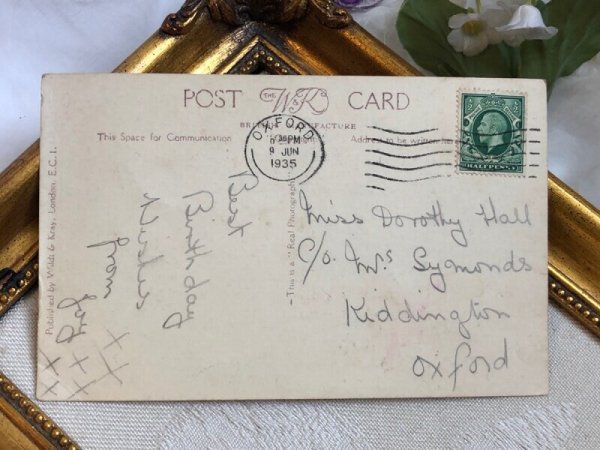 POST THE WK CARD
This Space for Communication Address to be written
OXFORD
PM
9 JUN
1935
HALFPENNY
Published by Wildt & Kray, London, E.C.1.
This is a "Real Photograph"
Best
Birthday
Wishes
from
Joy
x x
x x x
x x
Miss Dorothy Hall
C/o. Mrs Symonds
Kiddington
Oxford